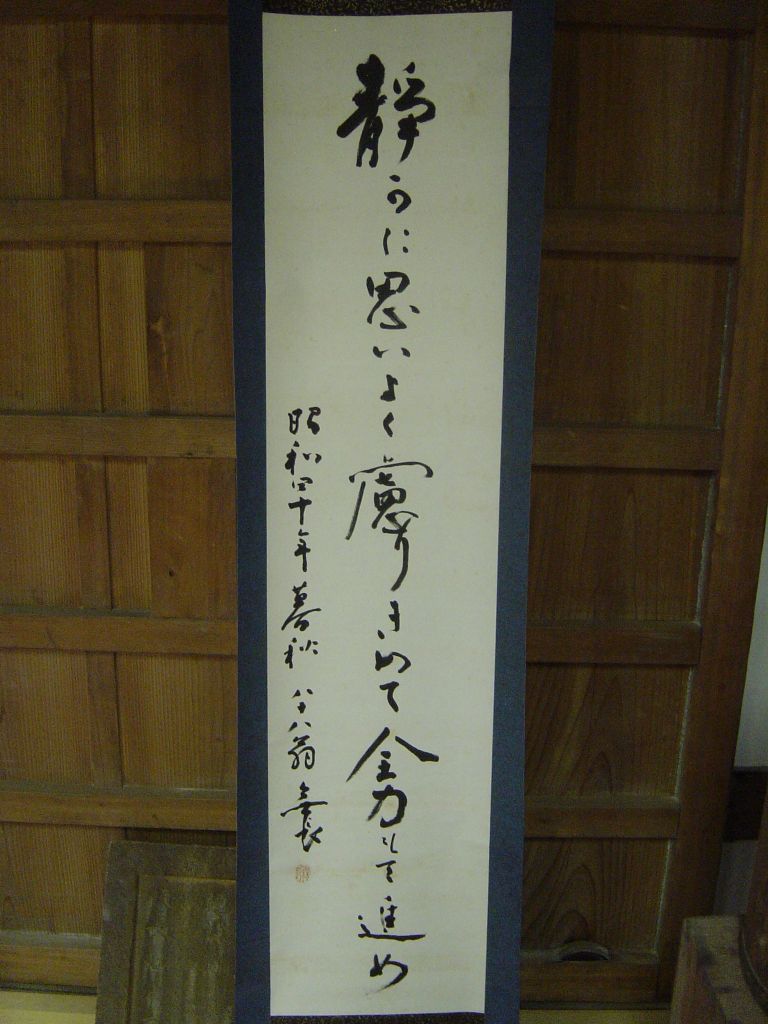 靜かに思いよく慮りきめて全力以て進め
昭和四十年暮秋 八十八翁